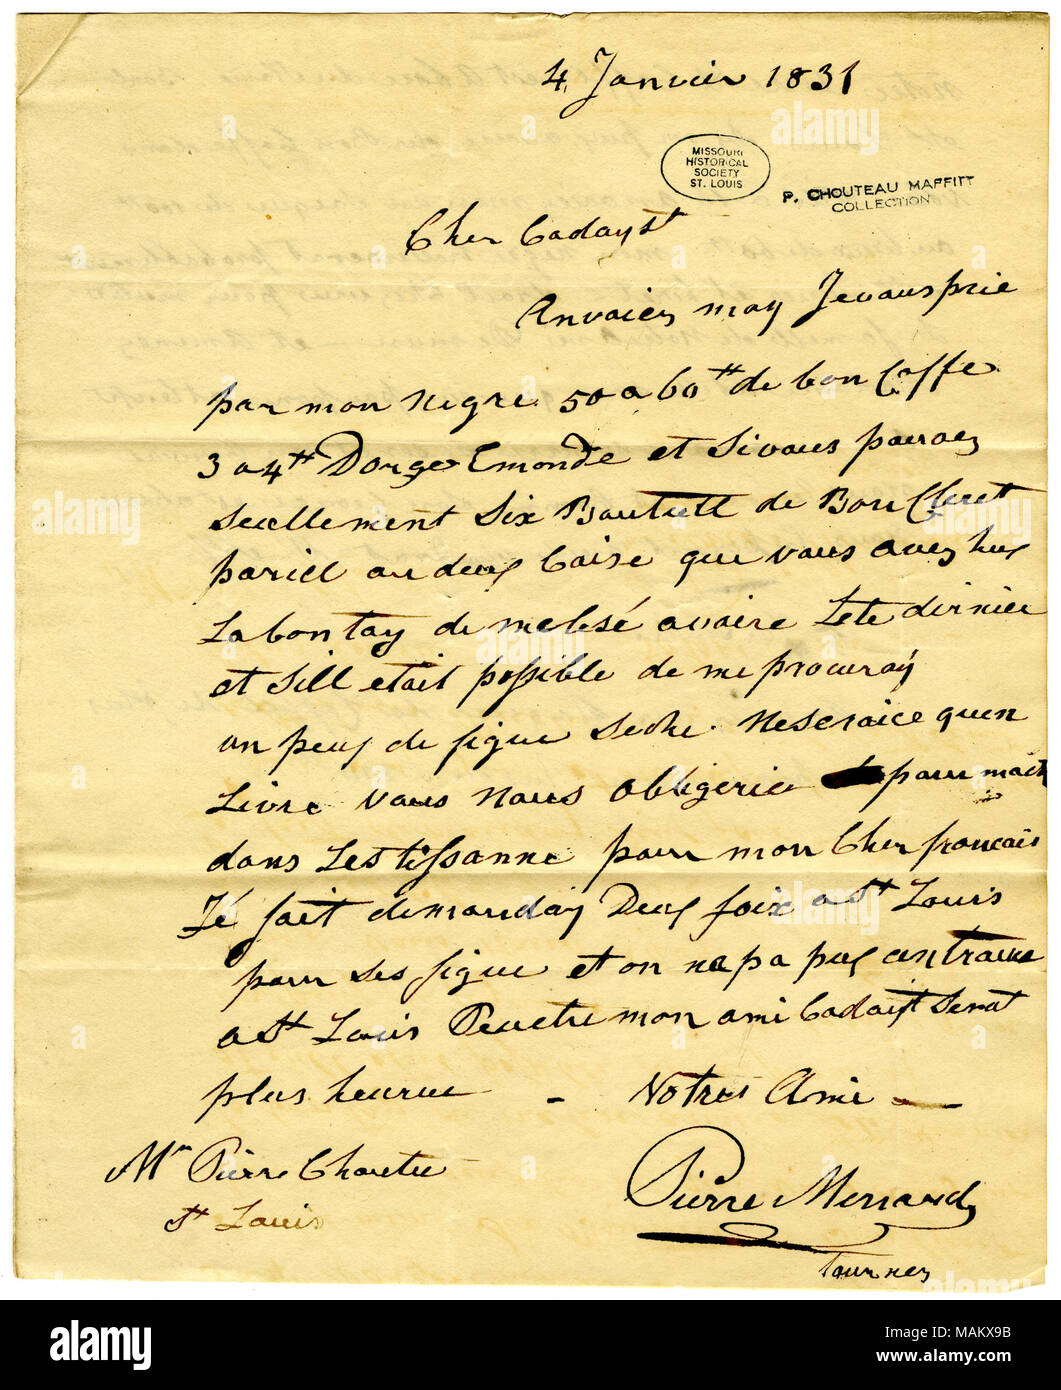 4 Janvier 1831
MISSOURI
HISTORICAL
SOCIETY
ST. LOUIS
P. CHOUTEAU MAFFITT
COLLECTION
Cher Cadayst
Anvoies moy Jevousprie
par mon negre 50 a 60tt de bon Caffe
3 a 4tt Dorge Emonde et Sivous pauvoes
seullement Six Boutiell de Bon Claret
pariell au deux Caise que vous aves hus
La bontay de melesé avoire Lete dirnier
et Sill etait possible de me procuray
un peux de figue seche. Neseraice quen
Livre vous nous obligerie pour maitr
dans Lestissanne pour mon Cher francais
Jé fait demanday Deux foix a St Louis
pour des figue et on nepa pux antrouve
a St Louis Peuetre mon ami Cadayst Serat
plus heurue - Notres Ami -
Mr Pierre Chouteu
St Louis
Pierre Menard
Tournes
alamy
Image ID: MAKX9B
www.alamy.com